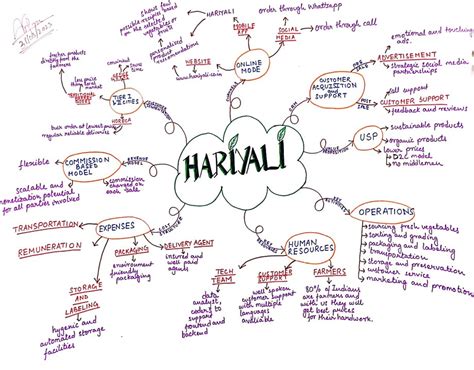 21/08/2023
show fool
possible recipies based
on the selected
vegetables or
fruits
personalized
product
recommendations
HARIYALI
MOBILE
APP
order through whatsapp
SOCIAL
MEDIA
order through call
WEBSITE
www.hariyali.co.in
ONLINE
MODE
emotional and touching
ads.
ADVERTISEMENT
strategic social media
partnerships
CUSTOMER
ACQUISITION
AND
SUPPORT
all support
CUSTOMER SUPPORT
feedback and reviews
fresher products
directly from the
farmers
low price
than local
market
convenient
saves
time
TIER 1
CITIES
HORECA
bulk order at lowest price
regular reliable deliveries
USP
sustainable products
organic products
lower prices
D2C model
no middleman
flexible
COMMISSION
BASED
MODEL
scalable and
monetization potential
for all parties involved
commission
charged on
each sale
HARIYALI
OPERATIONS
sourcing fresh vegetables
sorting and grading
packaging and labelling
transportation
storage and preservation
customer service
marketing and promotions
TRANSPORTATION
REMUNERATION
EXPENSES
PACKAGING
environment
friendly
packaging
DELIVERY AGENT
insured and
well paid
agents
STORAGE
AND
LABELING
hygenic and
automated storage
facilities
HUMAN
RESOURCES
TECH
TEAM
data
analyst,
coders to
support
frontend and
backend
CUSTOMER
SUPPORT
well spoken
customer support
with multiple
languages
available
FARMERS
80% of Indians
are farmers and
with us they will
get best prices
for their hardwork.